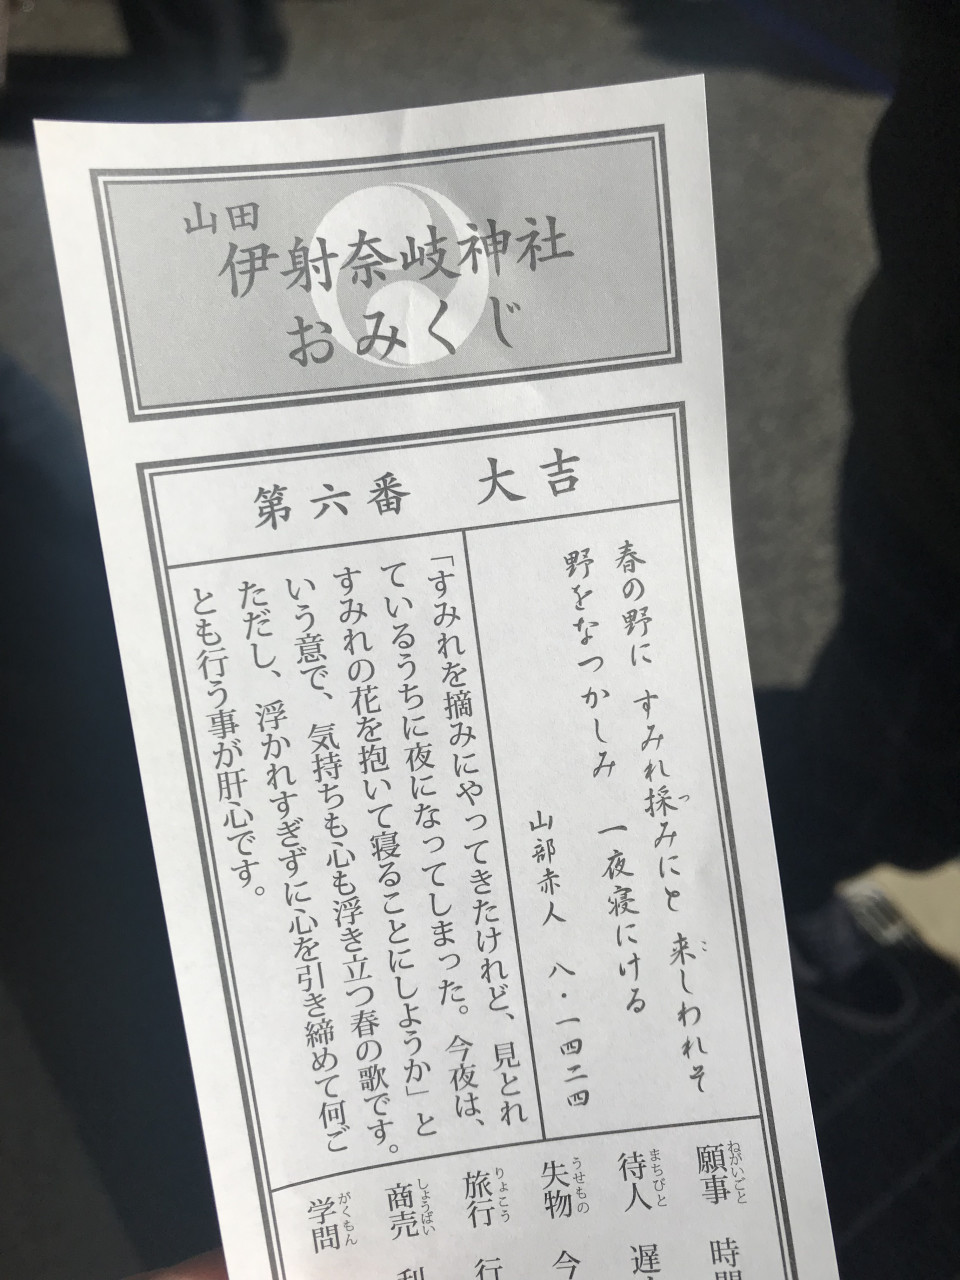 山田
伊射奈岐神社
おみくじ
第六番 大吉
春の野に すみれ採みにと 来しわれそ
っ
こ
野をなつかしみ 一夜寝にける
山部赤人 八・一四二四
「すみれを摘みにやってきたけれど、見とれ
ているうちに夜になってしまった。今夜は、
すみれの花を抱いて寝ることにしようか」と
いう意で、気持ちも心も浮き立つ春の歌です。
ただし、浮かれすぎずに心を引き締めて何ご
とも行う事が肝心です。
願事 時間
ねがいごと
待人 遅
まちびと
失物 今
うせもの
旅行 行
りょこう
商売 利
しょうばい
学問
がくもん